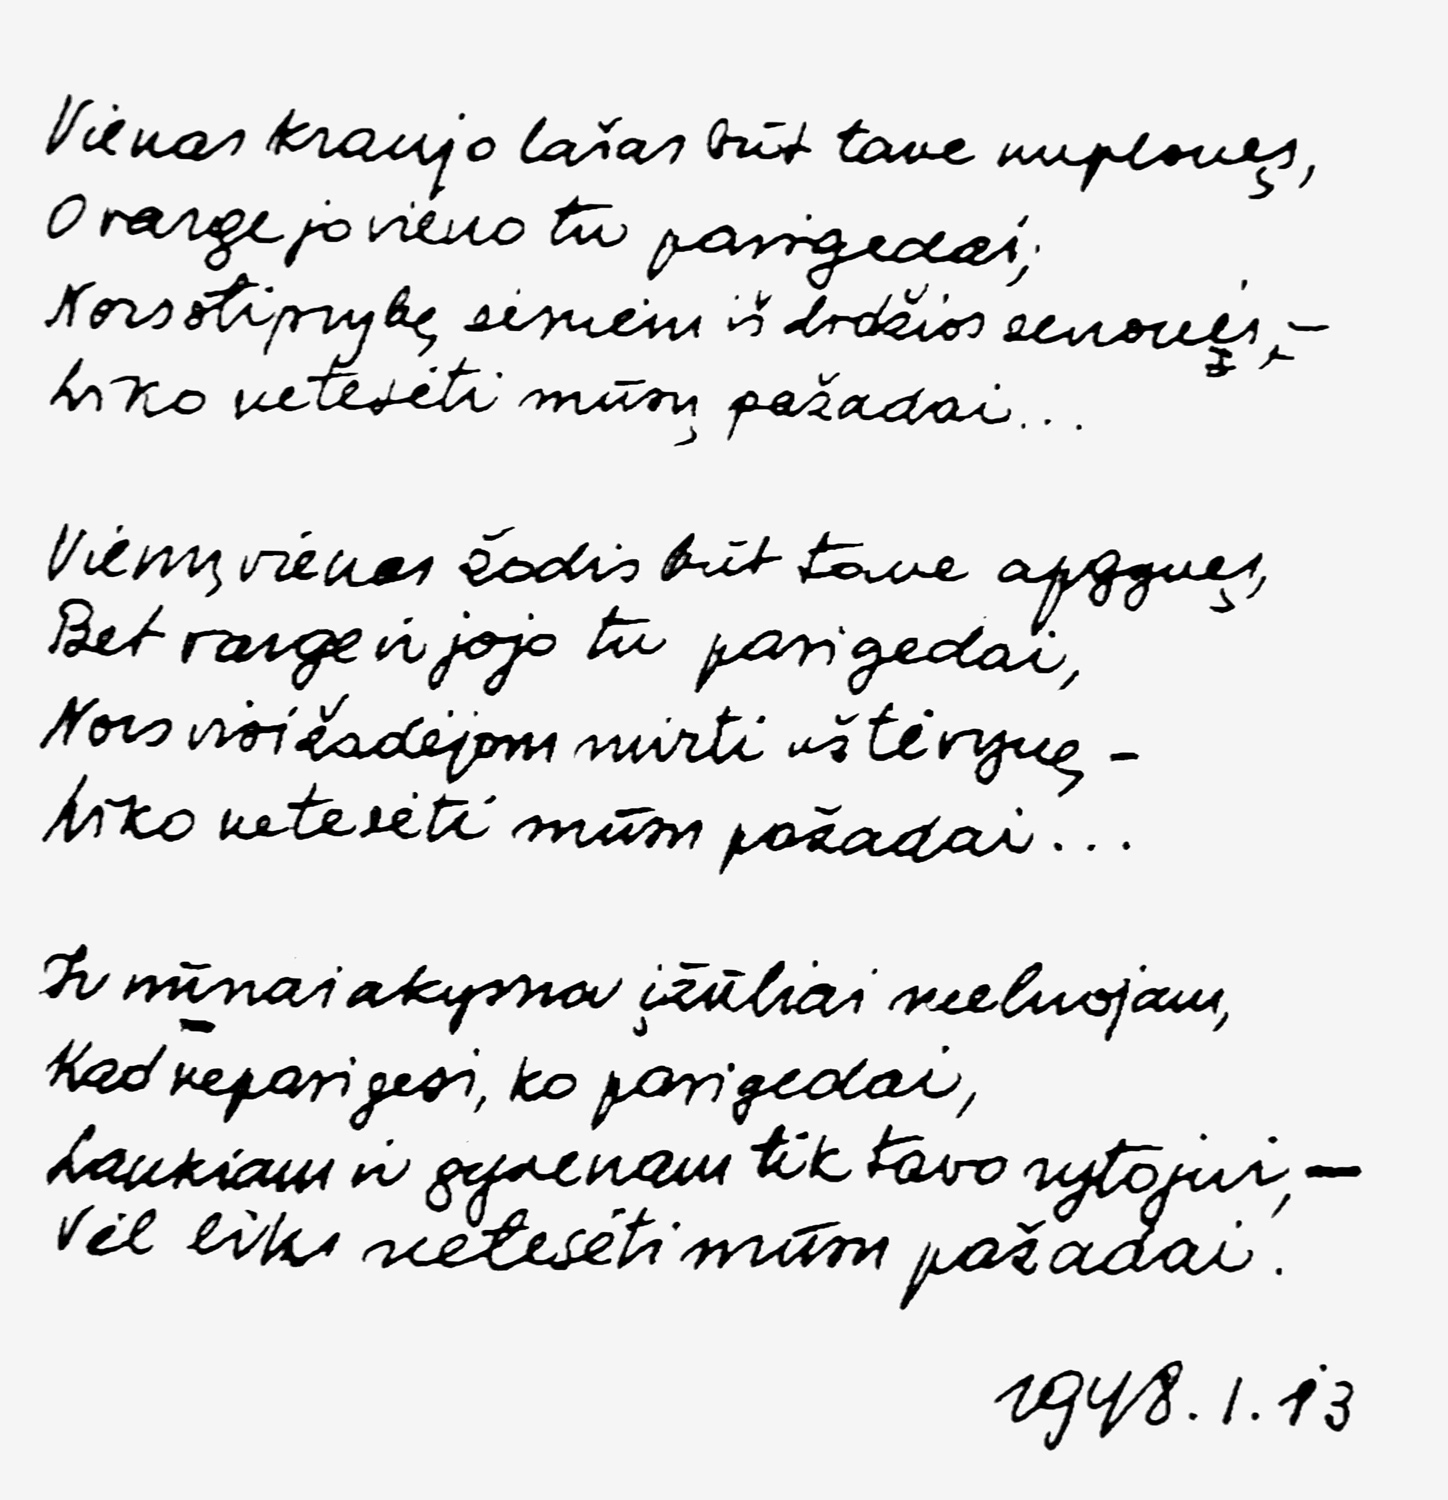 Vienas kraujo lašas būt tave nuplovęs,
O varge jo vieno tu pasigedai;
Nors stiprybę sėmėm iš didžios senovės, –
Liko netesėti mūsų pažadai...
Vienų vienas žodis būt tave apgynęs,
Bet varge ir jojo tu pasigedai,
Nors visi žadėjom mirti už tėvynę –
Liko netesėti mūsų pažadai...
Ir nūnai akysna įžūliai meluojam,
Kad nepasigesi, ko pasigedai,
Laukiam ir gyvenam tik tavo rytojui, –
Vėl liks netesėti mūsų pažadai.
1948.1.13